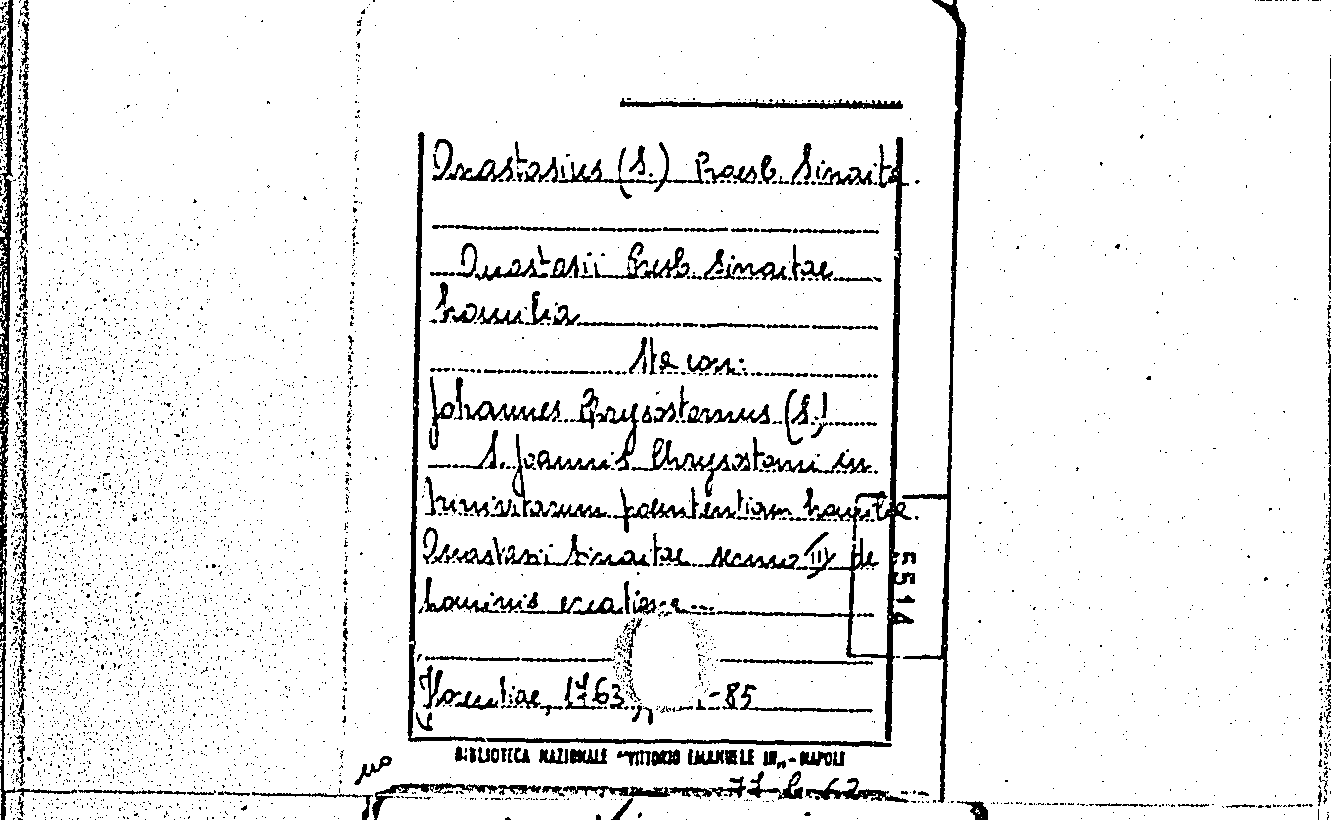 Anastasius (S.) Presb. Sinaita.
Anastasii Presb. Sinaitae
homilia
Sta con:
Johannes Chrysostomus (S.)
S. Joannis Chrysostomi in
Ninivitarum poenitentiam homilia.
Anastasii Sinaitae sermo III de
hominis creatione...
5514
Florentiae, 1763, -85
BIBLIOTECA NAZIONALE "VITTORIO EMANUELE III" - NAPOLI